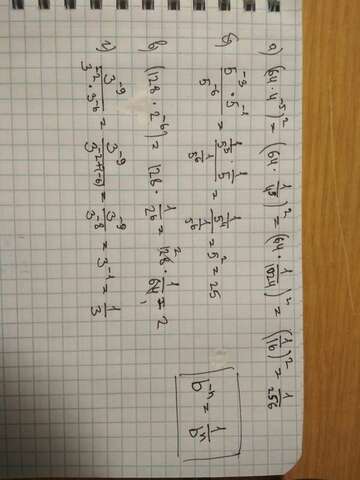 а) (64 · 4⁻⁵)² = (64 · 1/4⁵)² = (64 · 1/1024)² = (1/16)² = 1/256
б) (5⁻³ · 5⁻¹)/5⁻⁶ = (1/5³ · 1/5)/(1/5⁶) = (1/5⁴)/(1/5⁶) = 5² = 25
в) (128 · 2⁻⁶) = 128 · 1/2⁶ = 128 · 1/64 = 2
г) 3⁻⁹/(3⁻² · 3⁻⁶) = 3⁻⁹/3⁻²⁺⁽⁻⁶⁾ = 3⁻⁹/3⁻⁸ = 3⁻¹ = 1/3
b⁻ⁿ = 1/bⁿ